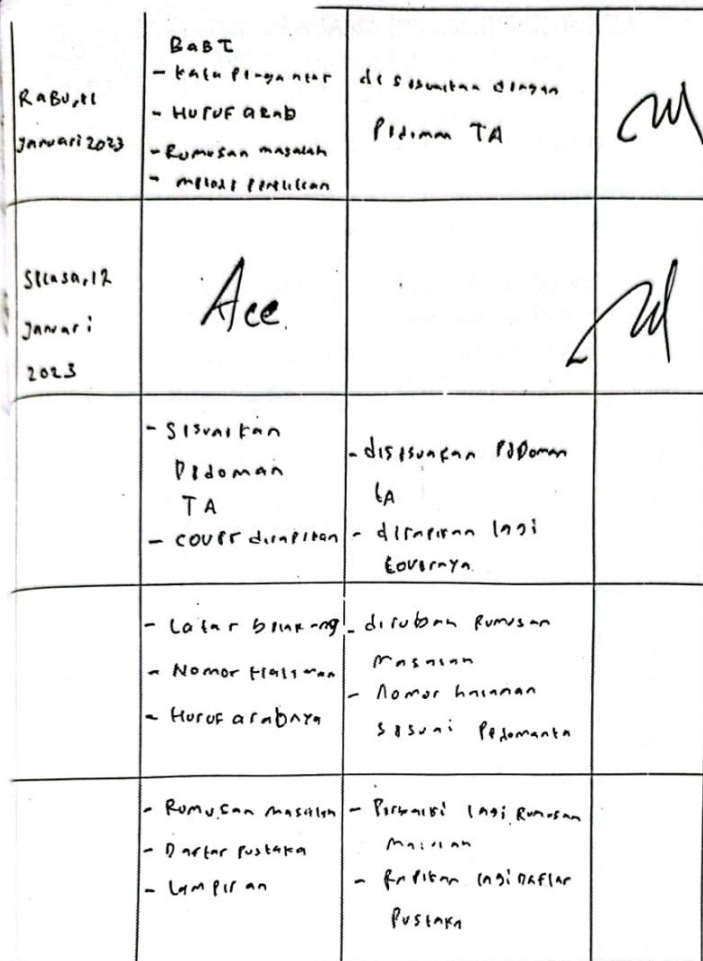 BAB I
- Kata Pengantar
- HURUF arab
- Rumusan masalah
- metode Penelitian
Rabu, 11
Januari 2023
di sesuaikan dengan
Pedoman TA
Selasa, 12
Januari
2023
Acc.
- Sesuaikan
Pedoman
TA
- COVER dirapikan
- disesuaikan Pedoman
TA
- dirapikan lagi
Covernya
- Latar belakang
- Nomor Halaman
- Huruf arabnya
- dirubah Rumusan
Masalah
- Nomor halaman
sesuai Pedoman ta
- Rumusan masalah
- Daftar Pustaka
- Lampiran
- Perbaiki lagi Rumusan
Masalah
- Rapikan lagi Daftar
Pustaka